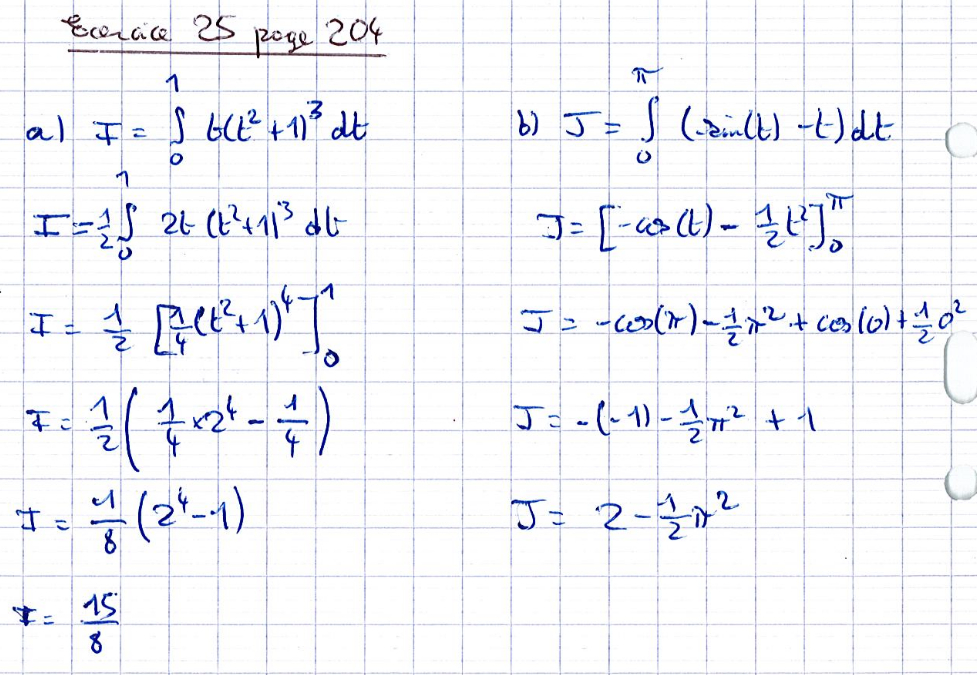 Exercice 25 page 204
a) I = ∫₀¹ t(t²+1)³ dt
I = 1/2 ∫₀¹ 2t (t²+1)³ dt
I = 1/2 [1/4 (t²+1)⁴]₀¹
I = 1/2 (1/4 × 2⁴ - 1/4)
I = 1/8 (2⁴-1)
I = 15/8
b) J = ∫₀^π (sin(t) - t) dt
J = [-cos(t) - 1/2 t²]₀^π
J = -cos(π) - 1/2 π² + cos(0) + 1/2 0²
J = -(-1) - 1/2 π² + 1
J = 2 - 1/2 π²